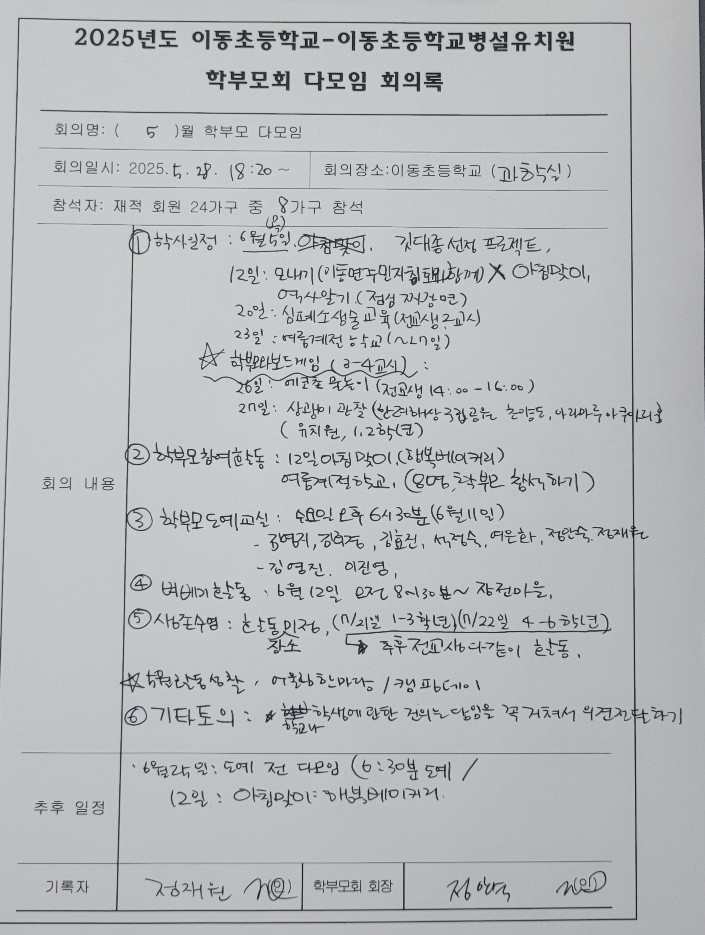 2025년도 이동초등학교-이동초등학교병설유치원
학부모회 다모임 회의록
회의명: ( 5 )월 학부모 다모임
회의일시: 2025. 5. 28. 18:20 ~
회의장소:이동초등학교 (과학실)
참석자: 재적 회원 24가구 중 8가구 참석
회의 내용
① 학사일정 : 6월 김대종 선정 프로젝트,
12일: 모내기 (이동면주민자치회와 함께) 아침맞이,
역사알기 (점심
20일: 심폐소생술 교육 (전교생 2교시)
23일: 여름계절학교 (~27일)
☆ 학부모와보드게임 (3-4교시) :
26일: 에코촌 물놀이 (전교생 14:00 - 16:00)
27일: 상괭이 관찰 (한려해상국립공원 초양도, 아라마루아쿠아리움)
(유치원, 1, 2학년)
② 학부모참여활동 : 12일 아침맞이, (행복베이커리)
여름계절학교, (8명, 학부모 참석하기)
③ 학부모도예교실 : 수요일 오후 6시 30분 (6월 11일)
- 김영지, 김효진, 석정숙, 여은화, 정안숙, 정재원
- 김영진, 이진영,
④ 벼베기활동 : 6월 12일 오전 8시30분~ 장전마을,
⑤ 생존수영 : 활동 미정, (7/21일 1-3학년) (7/22일 4-6학년)
장소
추후 전교생 다같이 활동,
☆ 학원 활동성찰, 어울림한마당 / 캠프데이
⑥ 기타토의 : 학생에 관한 건의는 담임을 꼭 거쳐서 의견전달하기
학교나
추후 일정
· 6월 일: 도예 전 다모임 (6:30분 도예 /
12일 : 아침맞이: 행복베이커리.
기록자
정재원 (인)
학부모회 회장
정안숙 (인)